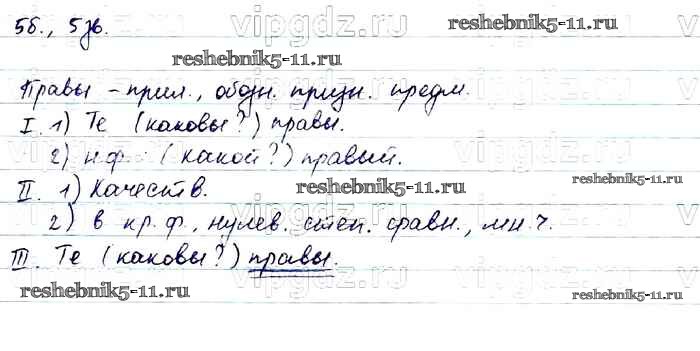 5б., 5 зв.
reshebnik5-11.ru
Правы - прил., обозн. призн. предм.
I. 1) Те (каковы?) правы.
2) н.ф. - (какой?) правый.
II. 1) Качеств.
reshebnik5-11.ru
2) в кр. ф., нулев. степ. сравн., мн. ч.
III. Те (каковы?) правы.
reshebnik5-11.ru
reshebnik5-11.ru
vipgdz.ru